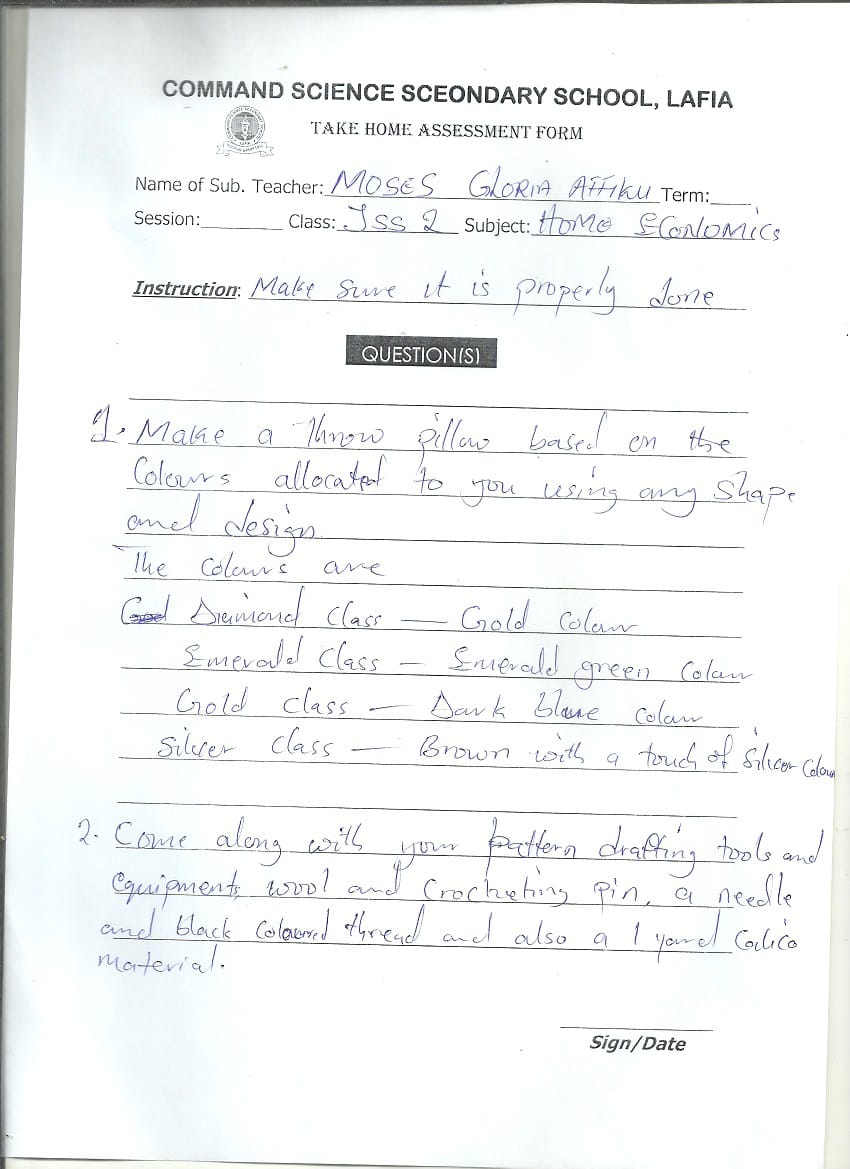 COMMAND SCIENCE SCEONDARY SCHOOL, LAFIA
TAKE HOME ASSESSMENT FORM
Name of Sub. Teacher: MOSES GLORIA AFFIKU Term:
Session: Class: JSS 2 Subject: HOME ECONOMICS
Instruction: Make sure it is properly done
QUESTION(S)
1. Make a throw pillow based on the
Colours allocated to you using any shape
and design.
The colours are
Diamond class — Gold colour
Emerald class — Emerald green colour
Gold class — Dark blue colour
Silver class — Brown with a touch of Silver colour
2. Come along with your pattern drafting tools and
equipments, wool and Crocheting pin, a needle
and black coloured thread and also a 1 yard Calico
material.
Sign/Date